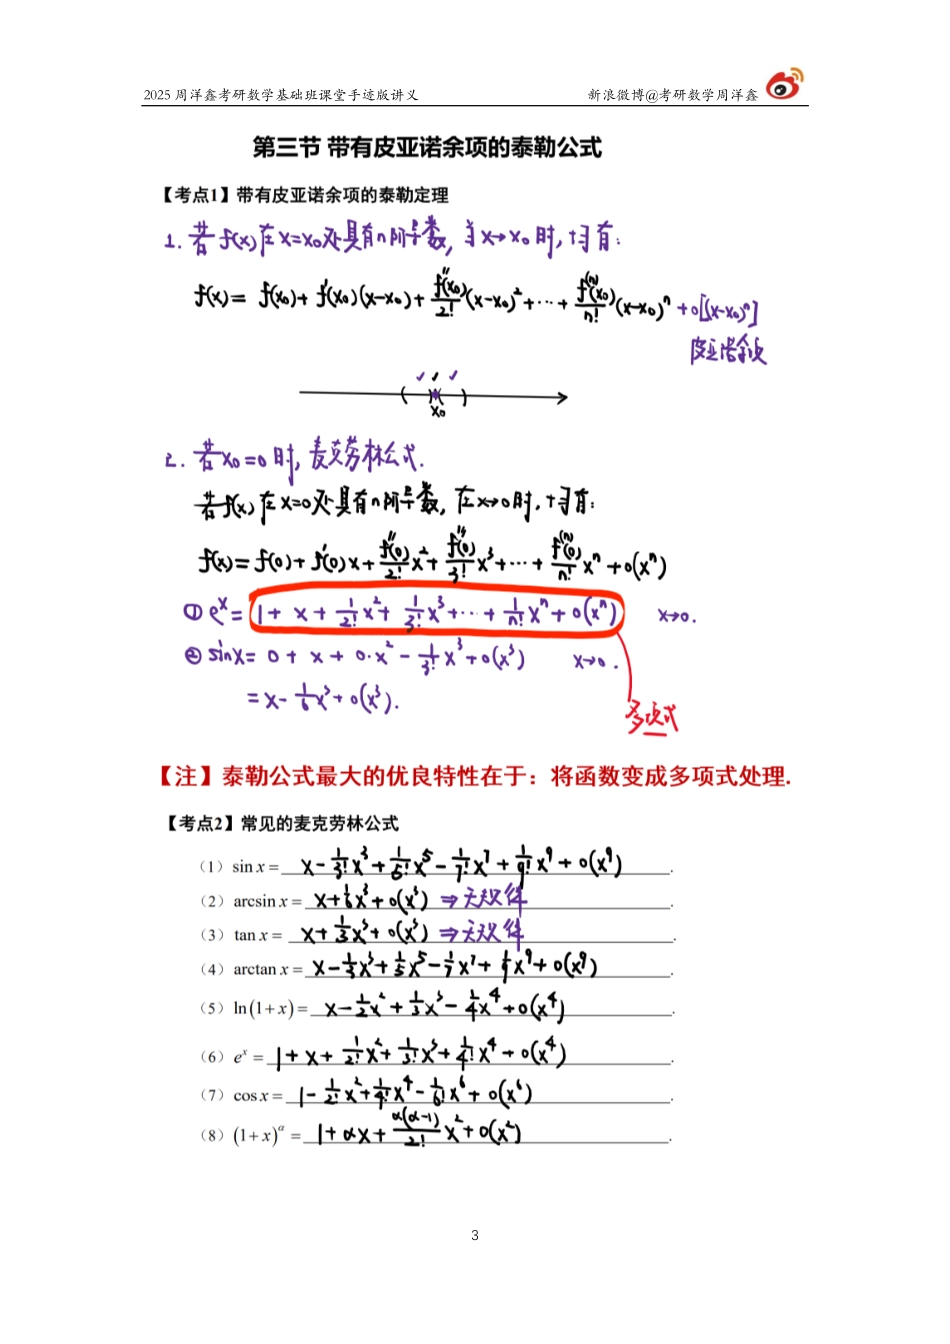 2025 周洋鑫考研数学基础班课堂手迹版讲义 新浪微博@考研数学周洋鑫
第三节 带有皮亚诺余项的泰勒公式
【考点1】带有皮亚诺余项的泰勒定理
1. 若f(x)在x=x₀处具有n阶导数, 当x→x₀时, 均有:
f(x)= f(x₀)+ f'(x₀)(x-x₀)+ f''(x₀)/2! (x-x₀)²+ ··· + f⁽ⁿ⁾(x₀)/n! (x-x₀)ⁿ + o[(x-x₀)ⁿ]
皮亚诺余项
x₀
2. 若x₀=0时, 麦克劳林公式.
若f(x)在x=0处具有n阶导数, 在x→0时, 均有:
f(x)= f(0)+ f'(0)x+ f''(0)/2! x²+ f'''(0)/3! x³+ ··· + f⁽ⁿ⁾(0)/n! xⁿ + o(xⁿ)
① eˣ= 1+ x + 1/2! x²+ 1/3! x³+ ··· + 1/n! xⁿ+ o(xⁿ) x→0.
② sinx= 0 + x + 0·x² - 1/3! x³+o(x³) x→0.
= x- 1/6 x³+ o(x³).
多项式
【注】泰勒公式最大的优良特性在于：将函数变成多项式处理.
【考点2】常见的麦克劳林公式
（1）sin x = x- 1/3! x³+ 1/5! x⁵- 1/7! x⁷ + 1/9! x⁹ + o(x⁹).
（2）arcsin x = x+ 1/6 x³+ o(x³) ⇒无规律.
（3）tan x = x+ 1/3 x³+ o(x³) ⇒无规律.
（4）arctan x = x- 1/3 x³+ 1/5 x⁵- 1/7 x⁷+ 1/9 x⁹+ o(x⁹).
（5）ln(1+x)= x- 1/2 x²+ 1/3 x³- 1/4 x⁴+o(x⁴).
（6）eˣ = 1+ x+ 1/2! x²+ 1/3! x³+ 1/4! x⁴ + o(x⁴).
（7）cos x = 1- 1/2! x²+ 1/4! x⁴- 1/6! x⁶+ o(x⁶).
（8）(1+x)^α = 1+ αx+ α(α-1)/2! x²+o(x²).
3